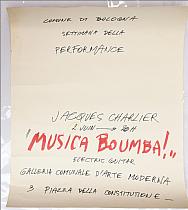 COMUNE DI BOLOGNA
SETTIMANA DELLA
PERFORMANCE
JACQUES CHARLIER
2 JUIN → 20H
"MUSICA BOUMBA!"
ELECTRIC GUITAR
GALLERIA COMUNALE D'ARTE MODERNA
3 PIAZZA DELLA CONSTITUTIONE _